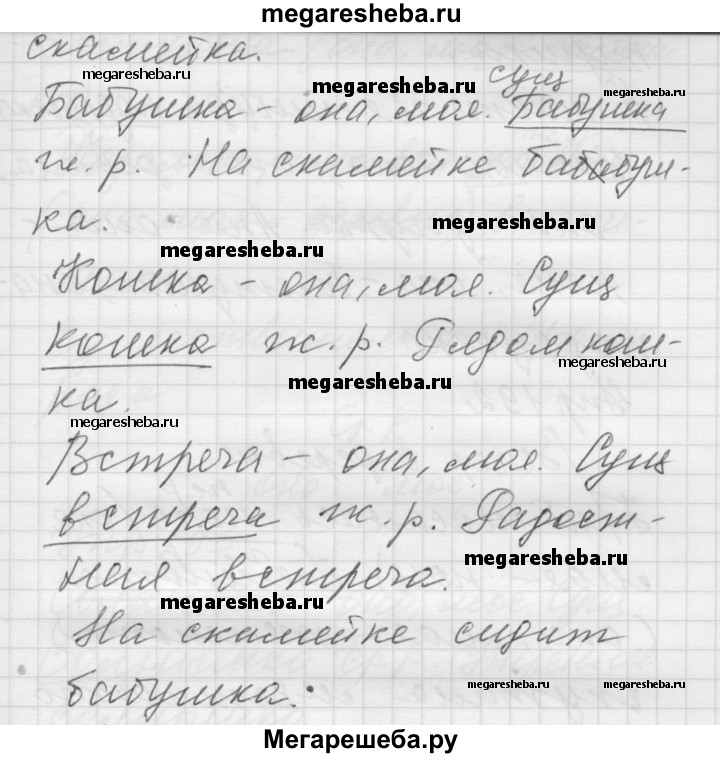 megaresheba.ru
скамейка.
megaresheba.ru
сущ
megaresheba.ru
Бабушка – она, моя. Бабушка
ж. р. На скамейке бабабуш-
ка.
megaresheba.ru
megaresheba.ru
Кошка – она, моя. Сущ
кошка ж. р. Рядом кош-
megaresheba.ru
megaresheba.ru
ка.
megaresheba.ru
Встреча – она, моя. Сущ
встреча ж. р. Радост-
megaresheba.ru
ная встреча.
megaresheba.ru
На скамейке сидит
бабушка.
megaresheba.ru megaresheba.ru
Мегарешеба.ру